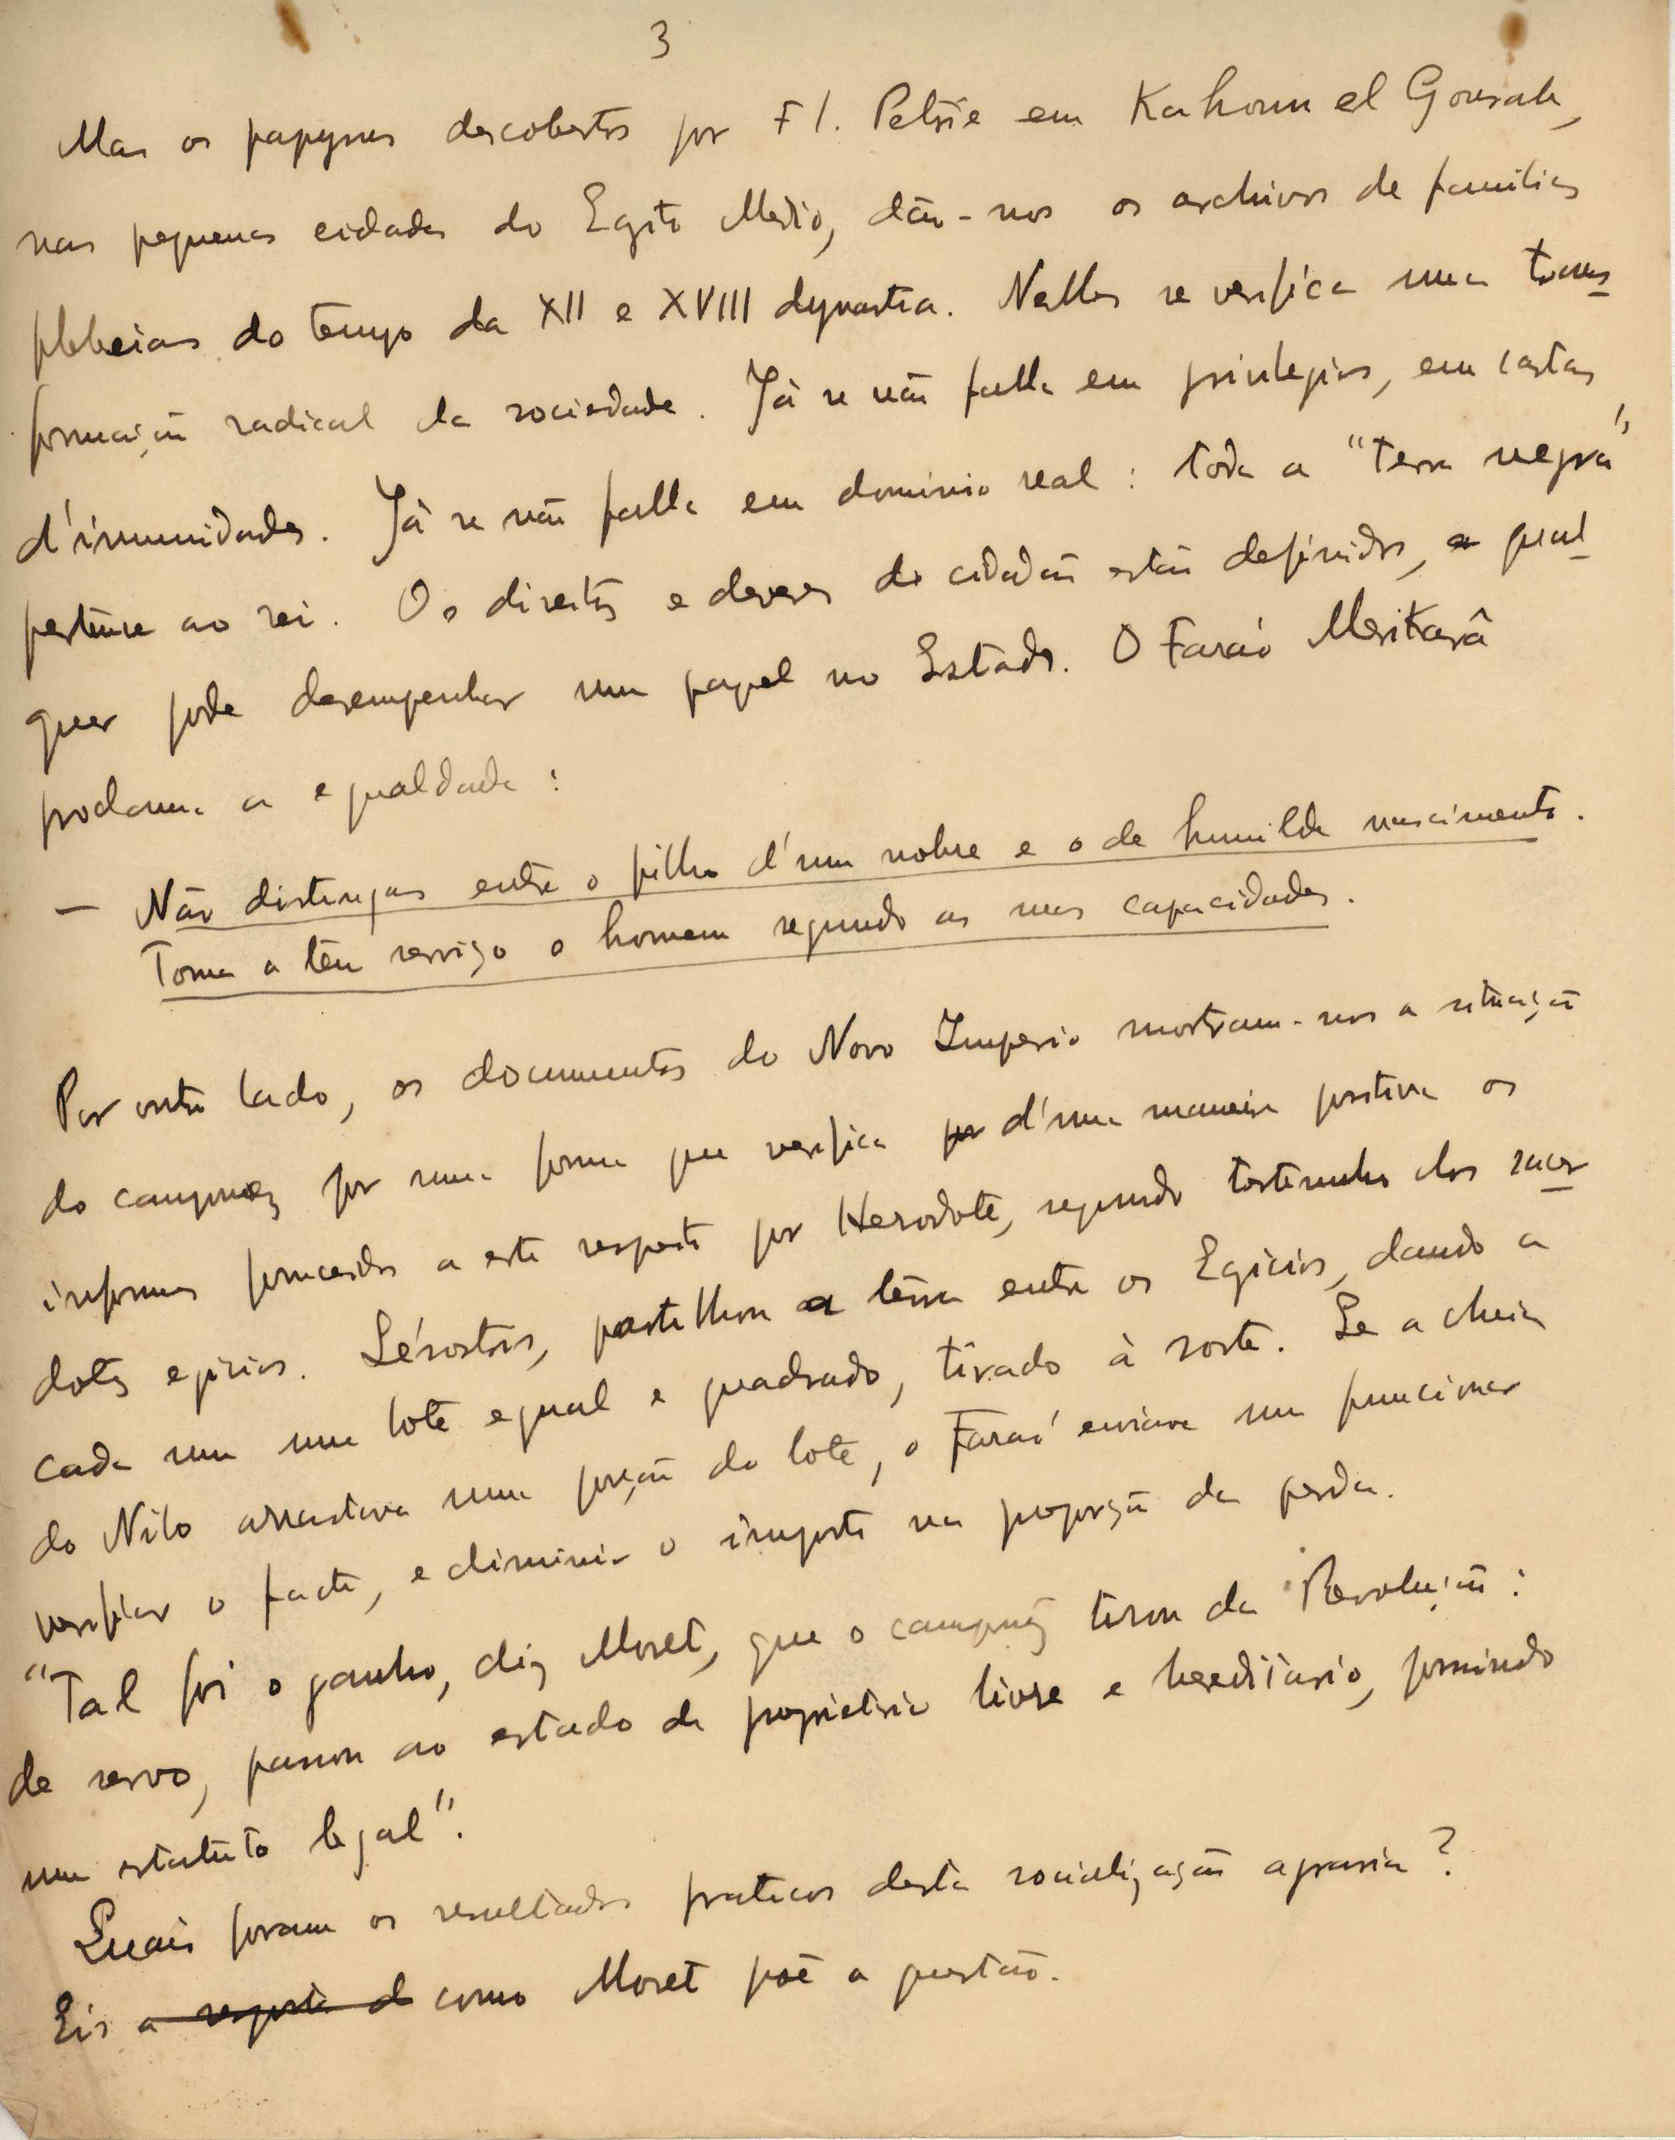 3
Mas os papyrus descobertos por Fl. Petrie em Kahoun el Gourab,
nas pequenas cidades do Egito Medio, dão-nos os archivos de familias
plebeias do tempo da XII e XVIII dynastia. Nelles se verifica uma trans
formação radical da sociedade. Já se não falla em privilegios, em cartas
d'immunidades. Já se não falla em dominio real: toda a "terra negra"
pertence ao rei. Os direitos e deveres do cidadão estão definidos, e qual
quer pode desempenhar um papel no Estado. O Faraó Merikarâ
proclama a egualdade:
— Não distingas entre o filho d'um nobre e o de humilde nascimento.
Toma a teu serviço o homem segundo as suas capacidades.
Por outro lado, os documentos do Novo Imperio mostram-nos a situação
do camponez por uma forma que verifica por d'uma maneira positiva os
informes fornecidos a este respeito por Herodoto, segundo testemunho dos sacer
dotes egicios. Sésostris, partilhou a terra entre os Egicios, dando a
cada um um lote egual e quadrado, tirado à sorte. Se a cheia
do Nilo arrastava uma porção do lote, o Faraó enviava um funcionar
verificar o facto, e diminuir o imposto na proporção da perda.
"Tal foi o ganho, diz Moret, que o camponez tirou da Revolução:
de servo, passou ao estado de proprietario livre e hereditario, possuindo
um estatuto legal".
Quais foram os resultados praticos desta socialização agraria?
Eis a resposta d como Moret põe a questão.